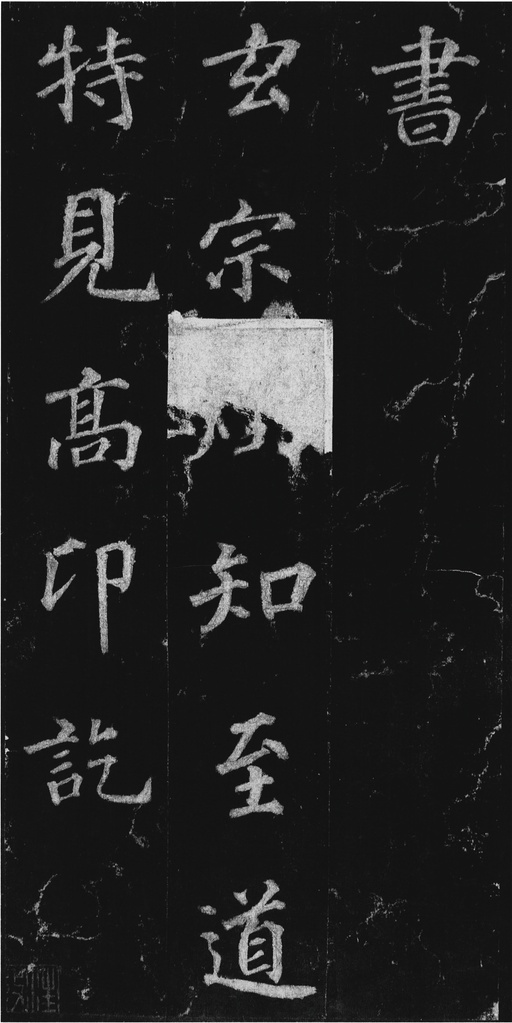 書
玄宗知至道
特見高印訖